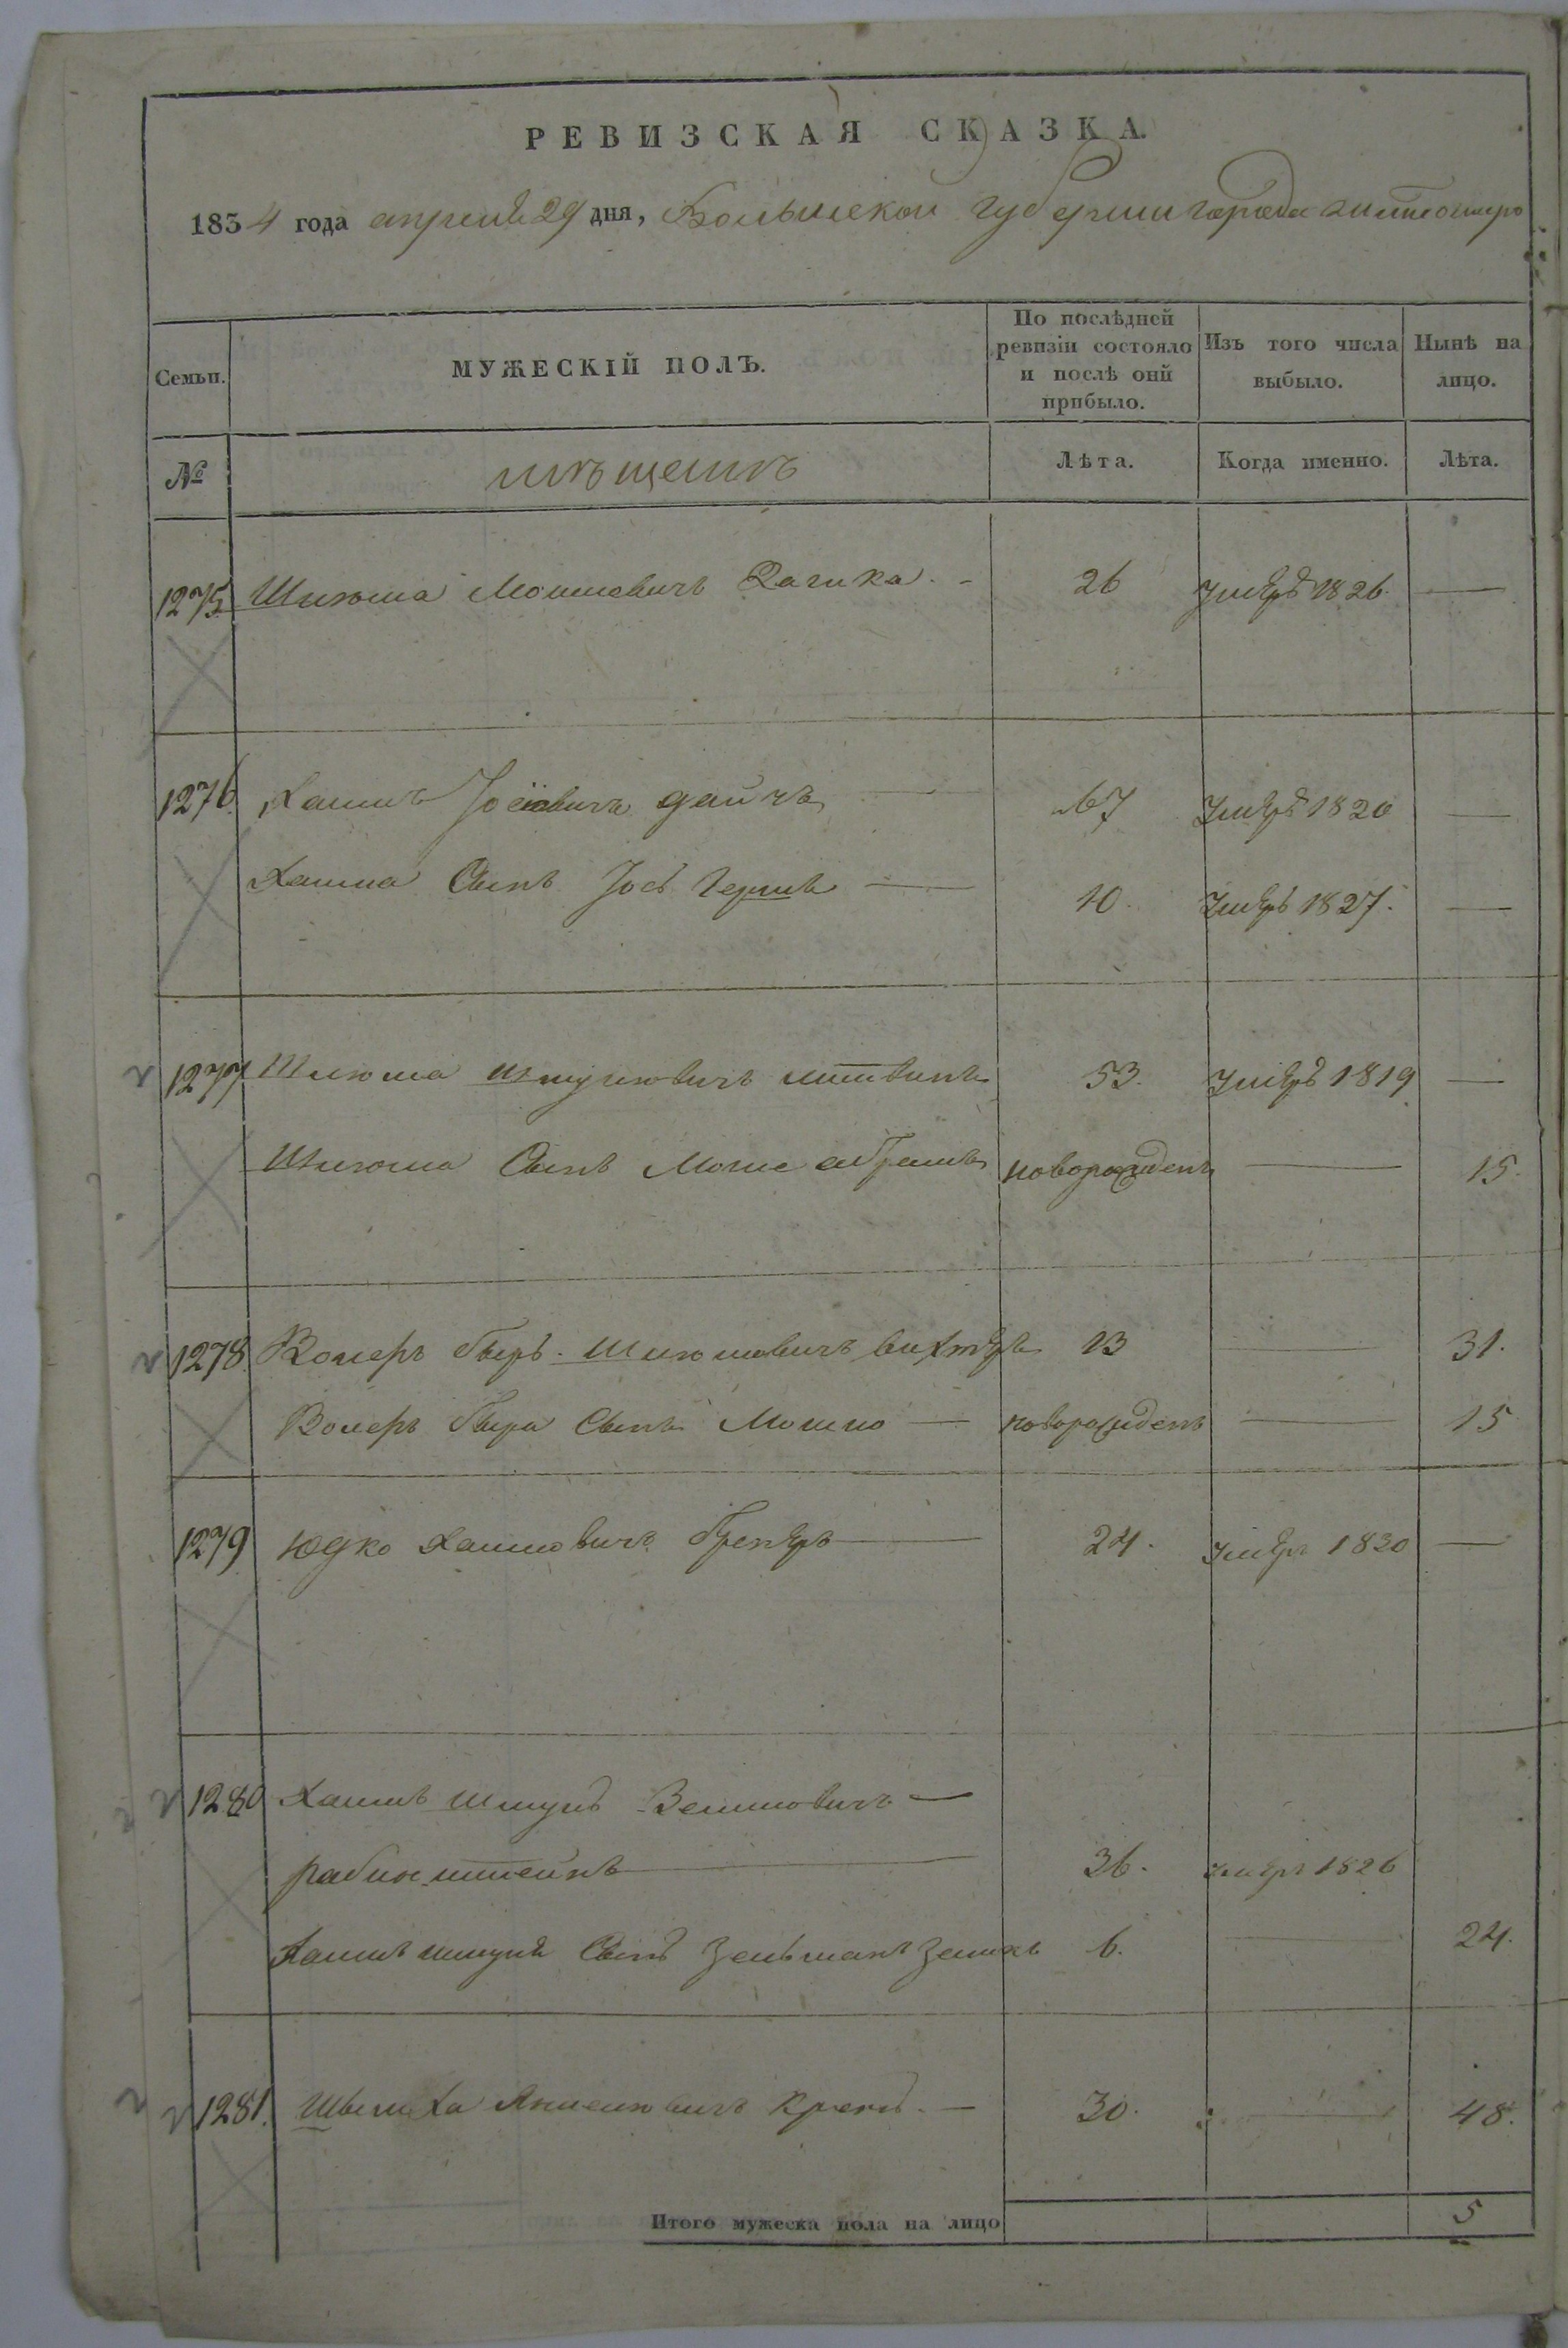 РЕВИЗСКАЯ СКАЗКА.
1834 года апреля 29 дня, Волынской губернии города Житомира
Семьи.
МУЖЕСКІЙ ПОЛЪ.
По послѣдней ревизіи состояло и послѣ оной прибыло.
Изъ того числа выбыло.
Нынѣ на лицо.
№
мѣщанъ
Лѣта.
Когда именно.
Лѣта.
1275 Шлиома Мошковичъ 26 умеръ 1826. —
1276. Хаимъ Іосіовичъ Дайчъ — 67 умеръ 1820 —
Хаима Сынъ Іось Гершъ — 10. умеръ 1827. —
1277 Шлиома Шмулиовичъ Литвинъ 53. умеръ 1819 —
Шлиома Сынъ Мошко Абрамъ новорожденъ — 15.
1278. Волеръ Беръ Шлиомовичъ 13 — 31.
Волеръ Бера Сынъ Мошко — новорожденъ — 15
1279 Юдко Хаимовичъ — 24. умеръ 1830 —
1280 Хаимъ Шмуль Зеликовичъ —
Рабинштейнъ — 36. умеръ 1826
Хаимъ Шмуля Сынъ Зельманъ Зеликъ 6. — 24.
1281. 30. — 48.
Итого мужеска пола на лицо 5